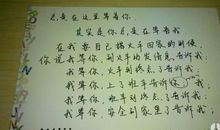 总是在这里等着你
其实是你总是在等着我
在我要自己搭火车回家的时候
你说我等你，到火车站告诉我
我等你，火车到终点了告诉我
我等你，上了班车告诉
我等你，班车到终点了告诉我
我等你，安全到家里了告诉我